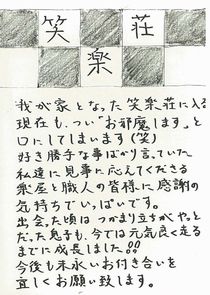 笑 荘
楽
我が家となった笑楽荘に入る
現在も、つい“お邪魔します”と
口にしてしまいます(笑)
好き勝手な事ばかり言っていた
私達に見事に応えてくださる
楽屋と職人の皆様に感謝の
気持ちでいっぱいです。
出会った頃はつかまり立ちがやっと
だった息子も、今では元気良く走る
までに成長しました!!
今後も末永いお付き合いを
宜しくお願い致します。